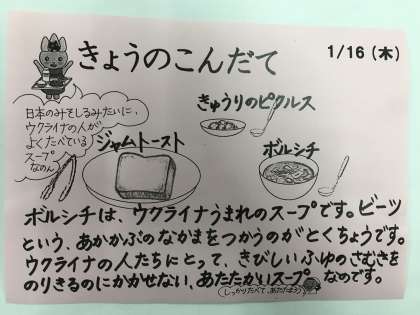 きょうのこんだて
1/16（木）
日本のみそしるみたいに、
ウクライナの人が
よくたべている
スープ
なのん
きゅうりのピクルス
ジャムトースト
ボルシチ
ボルシチは、ウクライナうまれのスープです。ビーツ
という、あかかぶのなかまをつかうのがとくちょうです。
ウクライナの人たちにとって、きびしいふゆのさむさを
のりきるのにかかせない、あたたかいスープなのです。
しっかりたべて、あたたまろう